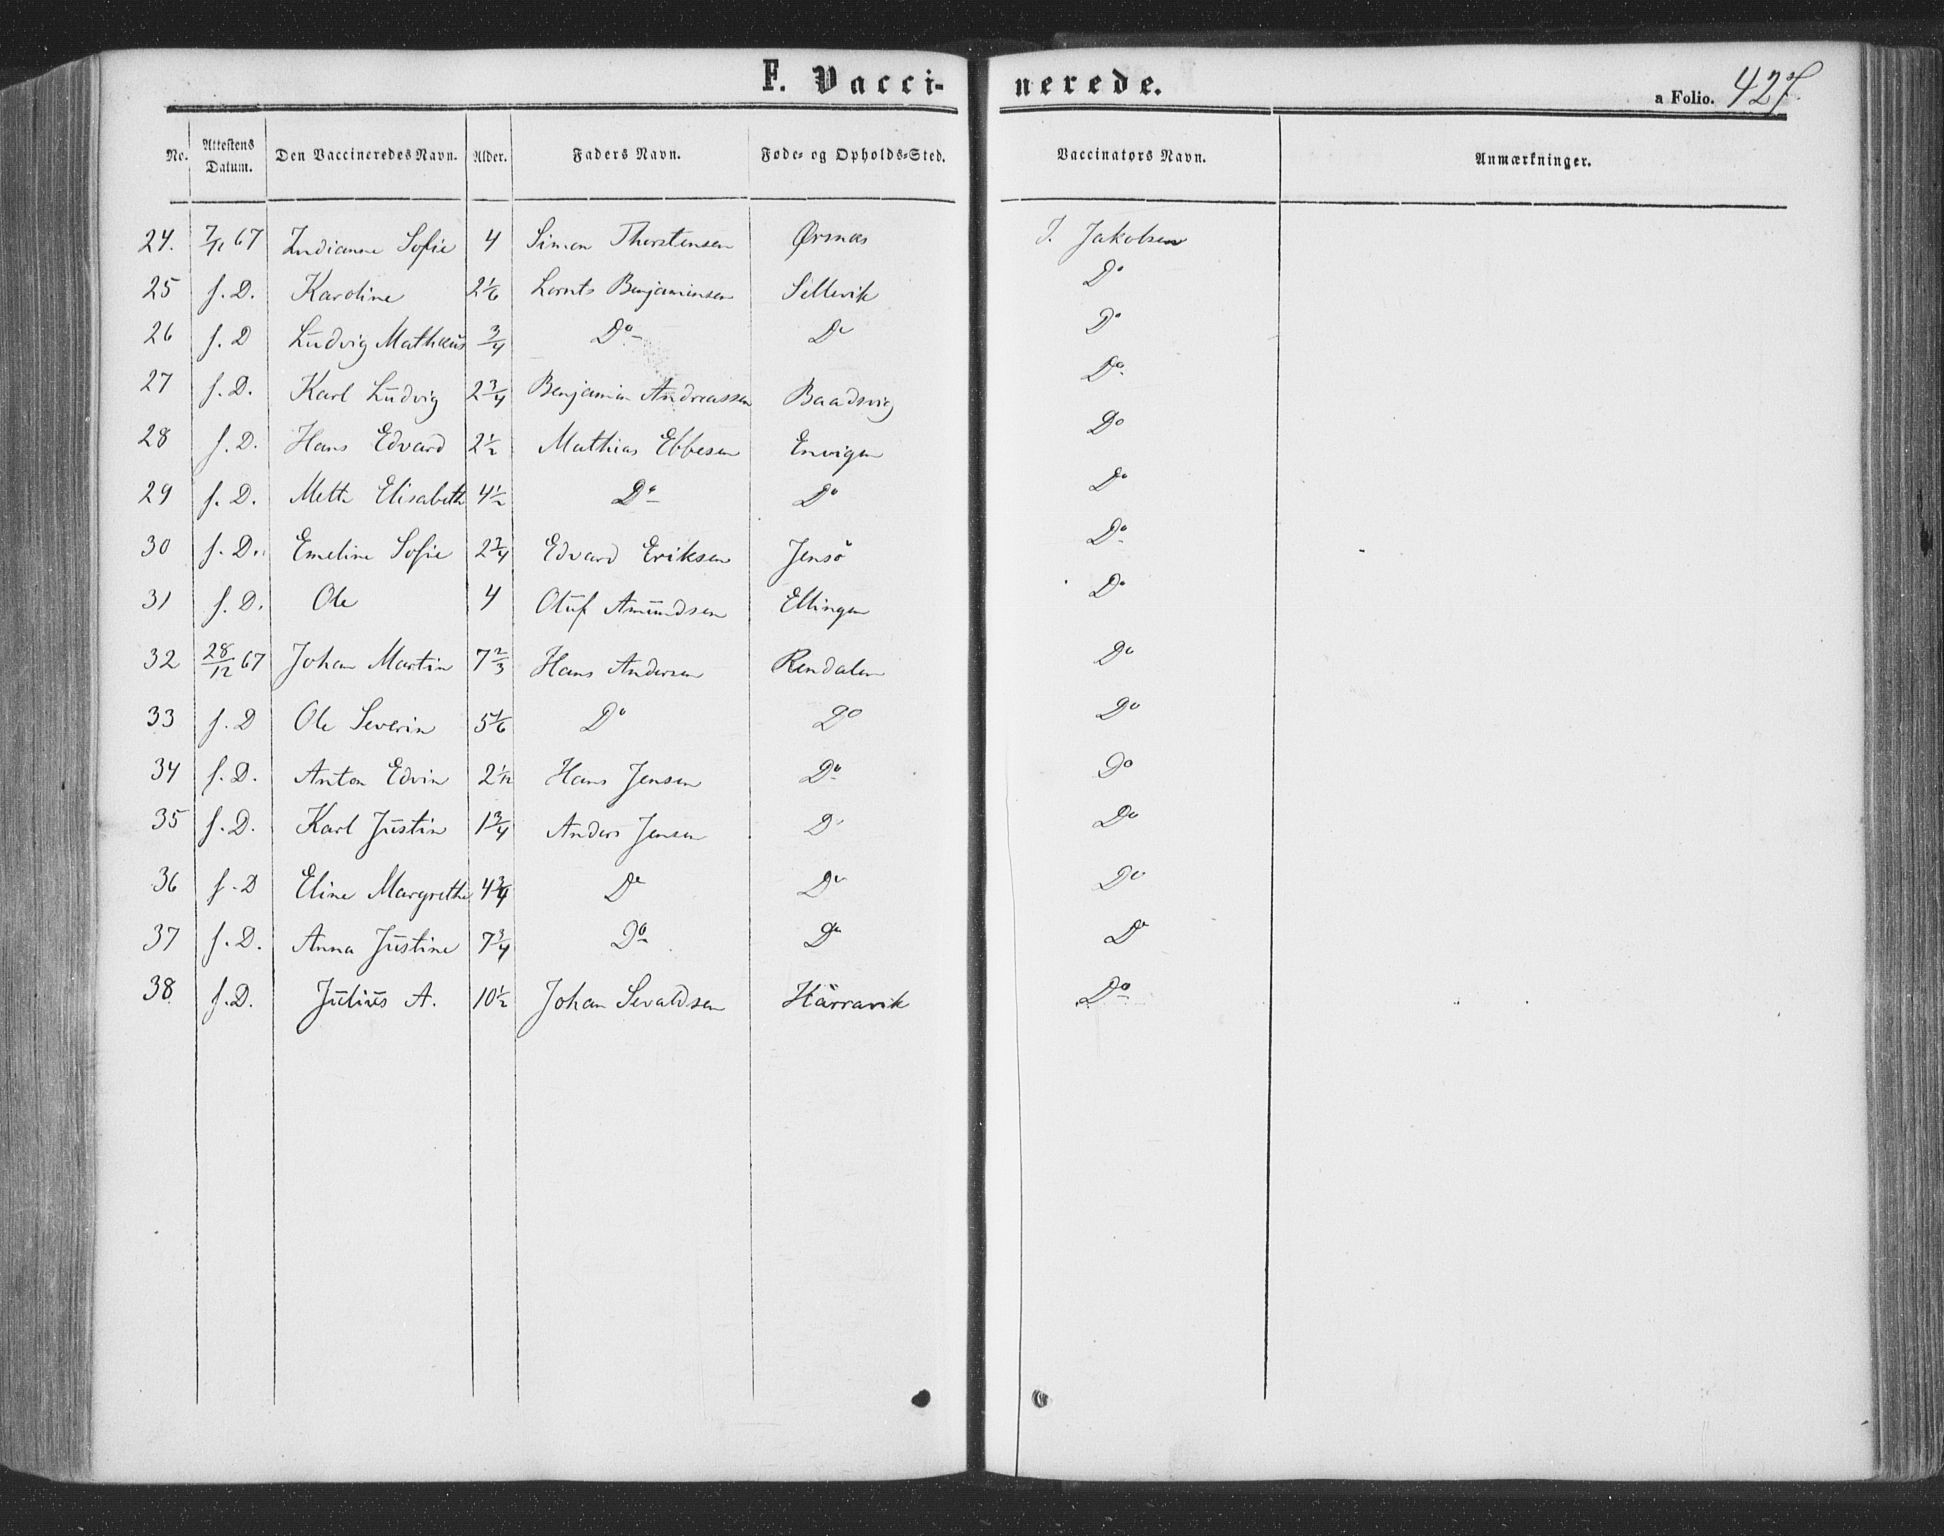 F. Vaccinerede.
a Folio. 427.
No. Attestens Datum. Den Vaccineredes Navn. Alder. Faders Navn. Føde- og Opholds-Sted. Vaccinators Navn. Anmærkninger.
24. 7/11 67 Indianne Sofie 4 Simon Thorstensen Ørsnæs J. Jakobsen
25 f. D. Karoline 2 1/6 Lornts Benjaminsen Sellevik Do
26 f. D Ludvig Mathæus 3/4 Do Do Do
27 f. D. Karl Ludvig 2 3/4 Benjamin Andreassen Baadsvig Do
28 f. D. Hans Edvard 2 1/2 Mathias Ebbesen Envigen Do
29 f. D. Mette Elisabeth 4 1/2 Do Do Do
30 f. D. Emeline Sofie 2 3/4 Edvard Eriksen Jensö Do
31 f. D. Ole 4 Oluf Amundsen Ellingen Do
32 28/12 67 Johan Martin 7 2/3 Hans Andersen Rendalen Do
33 f. D Ole Severin 5 1/6 Do Do Do
34 f. D. Anton Edvin 2 1/12 Hans Jensen Do Do
35 f. D. Karl Justin 1 3/4 Anders Jensen Do Do
36 f. D Eline Margrethe 4 3/4 Do Do Do
37 f. D. Anna Justine 7 3/4 Do Do Do
38 f. D. Julius A. 10 1/2 Johan Sevaldsen Harravik Do